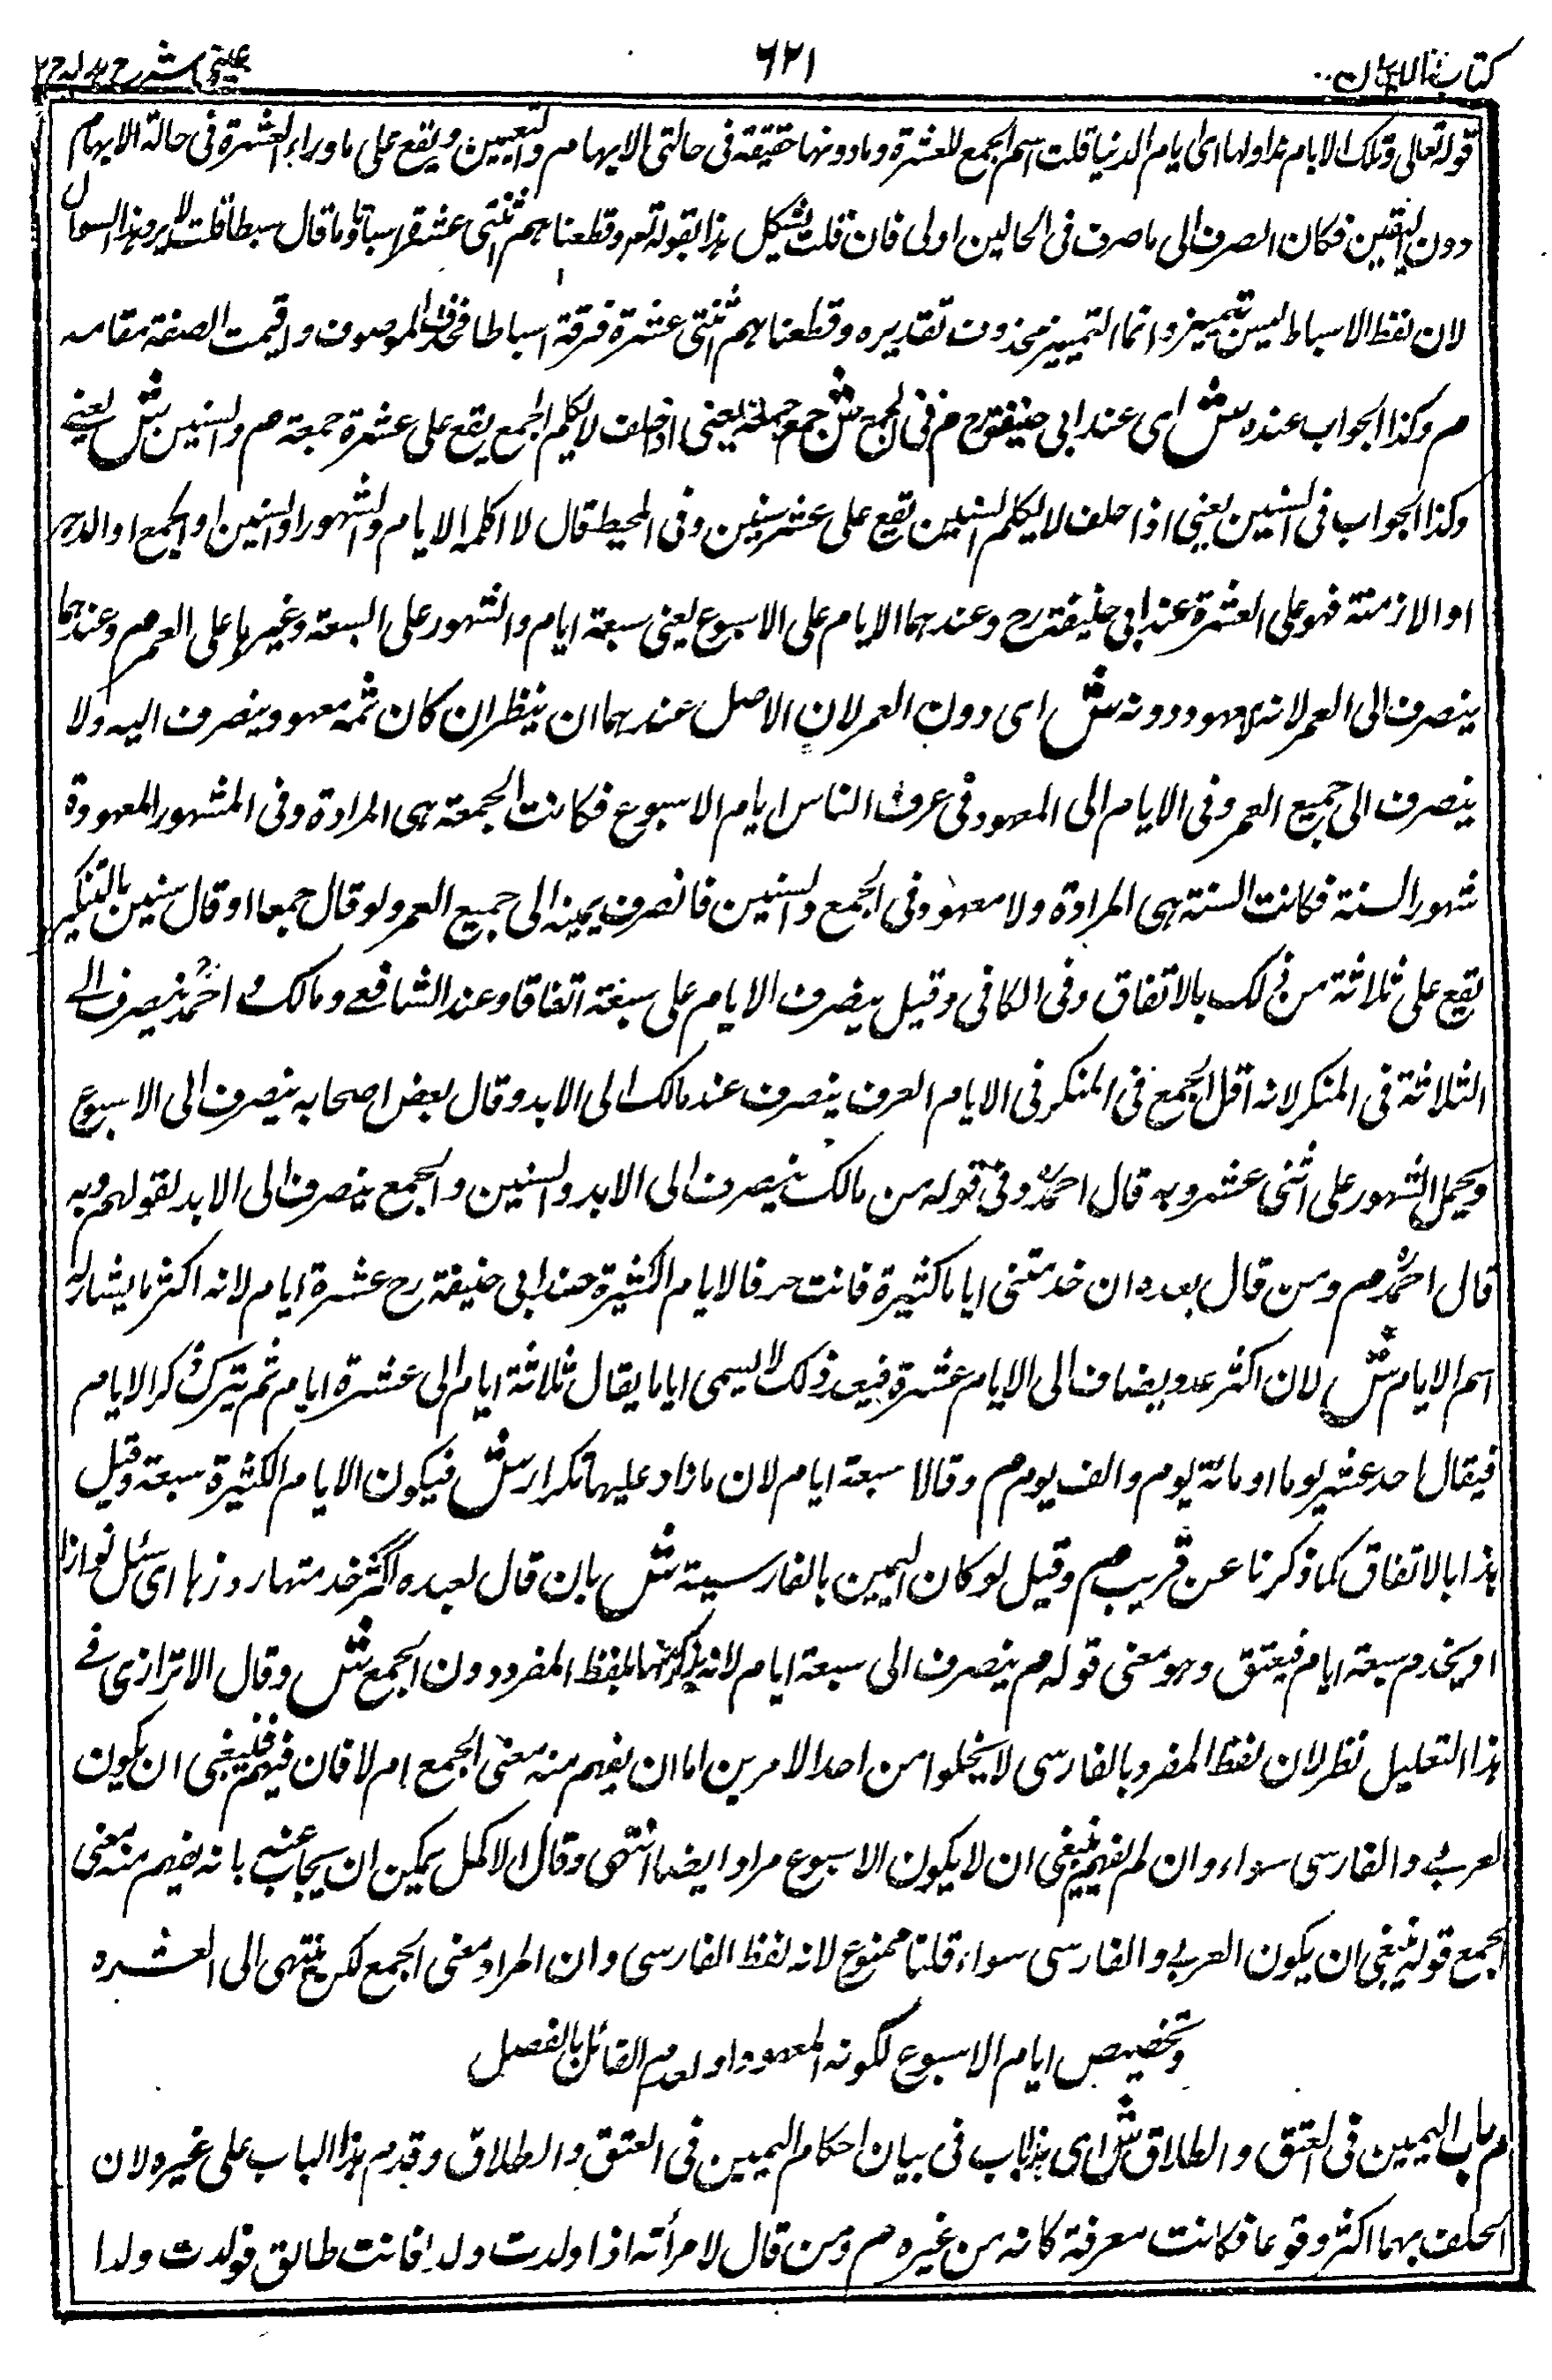 كتاب الايمان
٦٢١
عيني شرح هدايه ج ٢
قوله تعالى وتلك الايام نداولها اى ايام الدنيا قلت اسم الجمع للعشرة وما دونها حقيقة فى حالتى الابهام والتعيين ويقع على ماوراء العشرة فى حالة الابهام
دون التعيين فكان الصرف الى ما صرف فى الحالين اولى فان قلت يشكل هذا بقوله تعم وقطعناهم اثنتى عشرة اسباطا وما قال سبطا قلت لا يرد هذا السوال
لان لفظ الاسباط ليس بتمييز وانما التمييز محذوف تقديره وقطعناهم اثنتى عشرة فرقة اسباطا فحذف الموصوف واقيمت الصفة مقامه
م وكذا الجواب عنده ش اى عند ابى حنيفة رح م فى الجمع ش جمع جمعة يعنى اذا حلف لا يكلم الجمع يقع على عشرة جمعة م والسنين ش يعنى
وكذا الجواب فى السنين يعنى اذا حلف لا يكلم السنين تقع على عشر سنين وفى المحيط قال لا اكلمه الايام والشهور او السنين او الجمع او الدهر
او الازمنة فهو على العشرة عند ابى حنيفة رح وعندهما الايام على الاسبوع يعنى سبعة ايام والشهور على السبعة وغيرها على العمر م وعندهما
ينصرف الى العمر لانه لا معهود دونه ش اى دون العمر لان الاصل عندهما ان ينظر ان كان ثمه معهود ينصرف اليه ولا
ينصرف الى جميع العمر وفى الايام الى المعهود فى عرف الناس ايام الاسبوع فكانت الجمعة هى المرادة وفى المشهور المعهودة
شهور السنة فكانت السنة هى المرادة ولا معهود فى الجمع والسنين فانصرف يمينه الى جميع العمر ولو قال جمعا او قال سنين بالتنكير
يقع على ثلاثة من ذلك بالاتفاق وفى الكافى وقيل ينصرف الايام على سبعة اتفاقا وعند الشافعى ومالك و احمدؒ ينصرف الى
الثلاثة فى المنكر لانه اقل الجمع فى المنكر فى الايام العرف ينصرف عند مالك الى الابد وقال بعض اصحابه ينصرف الى الاسبوع
ويحمل الشهور على اثنى عشر وبه قال احمدؒ وفى قوله من مالك ينصرف الى الابد والسنين والجمع ينصرف الى الابد لقولهم وبه
قال احمدؒ م ومن قال بعده ان خدمتنى اياما كثيرة فانت حر فالايام الكثيرة عند ابى حنيفة رح عشرة ايام لانه اكثر ما يتناوله
اسم الايام ش لان اكثر عدد يضاف الى الايام عشرة فبعد ذلك لا يسمى اياما يقال ثلاثة ايام الى عشرة ايام ثم يترك ذكر الايام
فيقال احد عشر يوما او مائة يوم والف يوم م وقالا سبعة ايام لان ما زاد عليها تكرار ش فيكون الايام الكثيرة سبعة وقيل
هذا بالاتفاق كما ذكرنا عن قريب م وقيل لو كان اليمين بالفارسية ش بان قال لعبده اگر خدمتها روزها اى
او يخدم سبعة ايام فيعتق وهو معنى قوله م ينصرف الى سبعة ايام لانه يذكر فيها بلفظ المفرد دون الجمع ش وقال الاترازى فى
هذا التعليل نظر لان لفظ المفرد بالفارسى لا يخلوا من احد الامرين اما ان يفهم منه معنى الجمع ام لا فان فهم فينبغى ان يكون
العربى والفارسى سواء وان لم يفهم ينبغى ان لا يكون الاسبوع مرادا ايضا انتهى وقال الاكمل يمكن ان يجاب عنه بانه يفهم منه معنى
الجمع قوله ينبغى ان يكون العربى والفارسى سواء قلنا ممنوع لانه لفظ الفارسى وان المراد معنى الجمع لكن ينتهى الى العشره
وتخصيص ايام الاسبوع لكونه المعهود او لعدم القائل بالفصل
م باب اليمين فى العتق والطلاق ش اى هذا باب فى بيان احكام اليمين فى العتق والطلاق وقدم هذا الباب على غيره لان
الحلف بهما اكثر وقوعا فكانت معرفة كانه من غيره م ومن قال لامرأته اذا ولدت ولدا فانت طالق فولدت ولدا